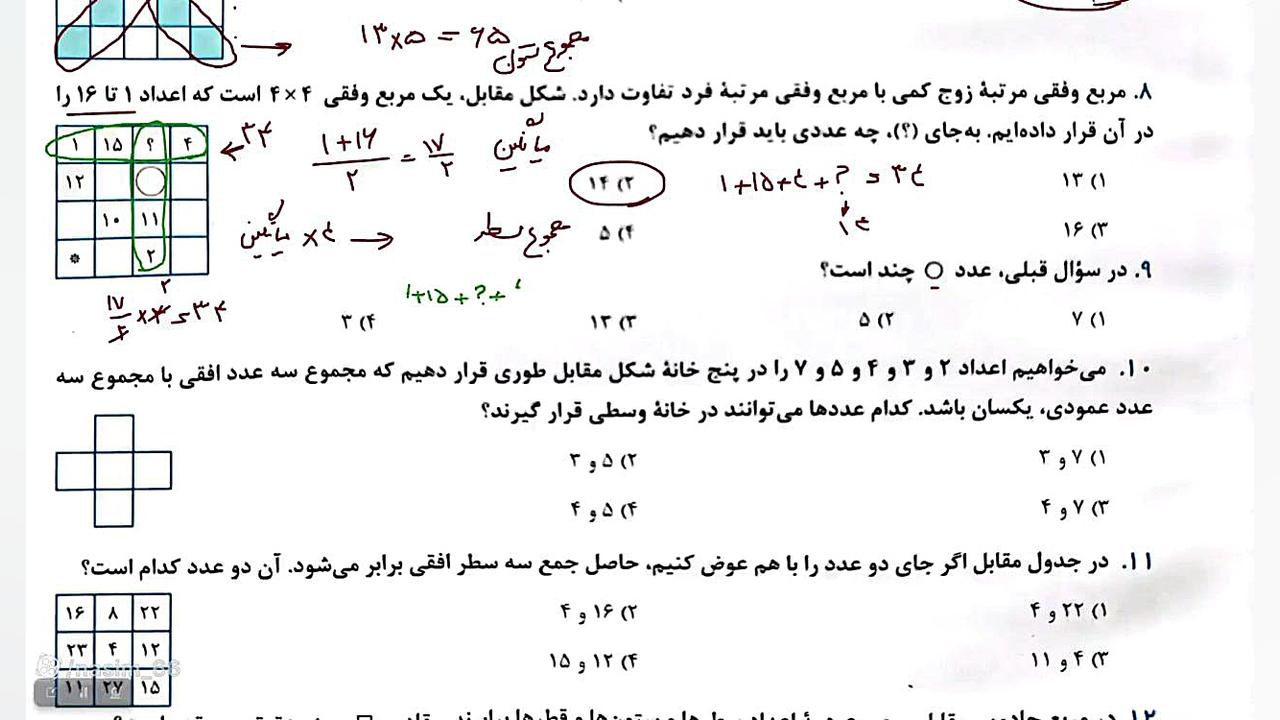 ۱۳×۵ = ۶۵ مجموع ستون
۸. مربع وفقی مرتبهٔ زوج کمی با مربع وفقی مرتبهٔ فرد تفاوت دارد. شکل مقابل، یک مربع وفقی ۴×۴ است که اعداد ۱ تا ۱۶ را
در آن قرار داده‌ایم. به‌جای (؟)، چه عددی باید قرار دهیم؟
۱ ۱۵ ؟ ۴
۱۲
۱۰ ۱۱
* ۲
۳۴
۱+۱۶/۲ = ۱۷/۲ میانگین
۱) ۱۳
۱+۱۵+۴+? = ۳۴
۱۴
۲) ۱۴
۳) ۱۶
۴) ۵
میانگین ×۴ → مجموع سطر
۱۷/۲ ×۴ = ۳۴
۲
۱+۱۵+?+
۹. در سؤال قبلی، عدد ○ چند است؟
۱) ۷
۲) ۵
۳) ۱۳
۴) ۳
۱۰. می‌خواهیم اعداد ۲ و ۳ و ۴ و ۵ و ۷ را در پنج خانهٔ شکل مقابل طوری قرار دهیم که مجموع سه عدد افقی با مجموع سه
عدد عمودی، یکسان باشد. کدام عددها می‌توانند در خانهٔ وسطی قرار گیرند؟
۱) ۷ و ۳
۲) ۵ و ۳
۳) ۷ و ۴
۴) ۵ و ۴
۱۱. در جدول مقابل اگر جای دو عدد را با هم عوض کنیم، حاصل جمع سه سطر افقی برابر می‌شود. آن دو عدد کدام است؟
۱۶ ۸ ۲۲
۲۳ ۴ ۱۲
۱۱ ۲۷ ۱۵
۱) ۲۲ و ۴
۲) ۱۶ و ۴
۳) ۴ و ۱۱
۴) ۱۲ و ۱۵
/nasim_66